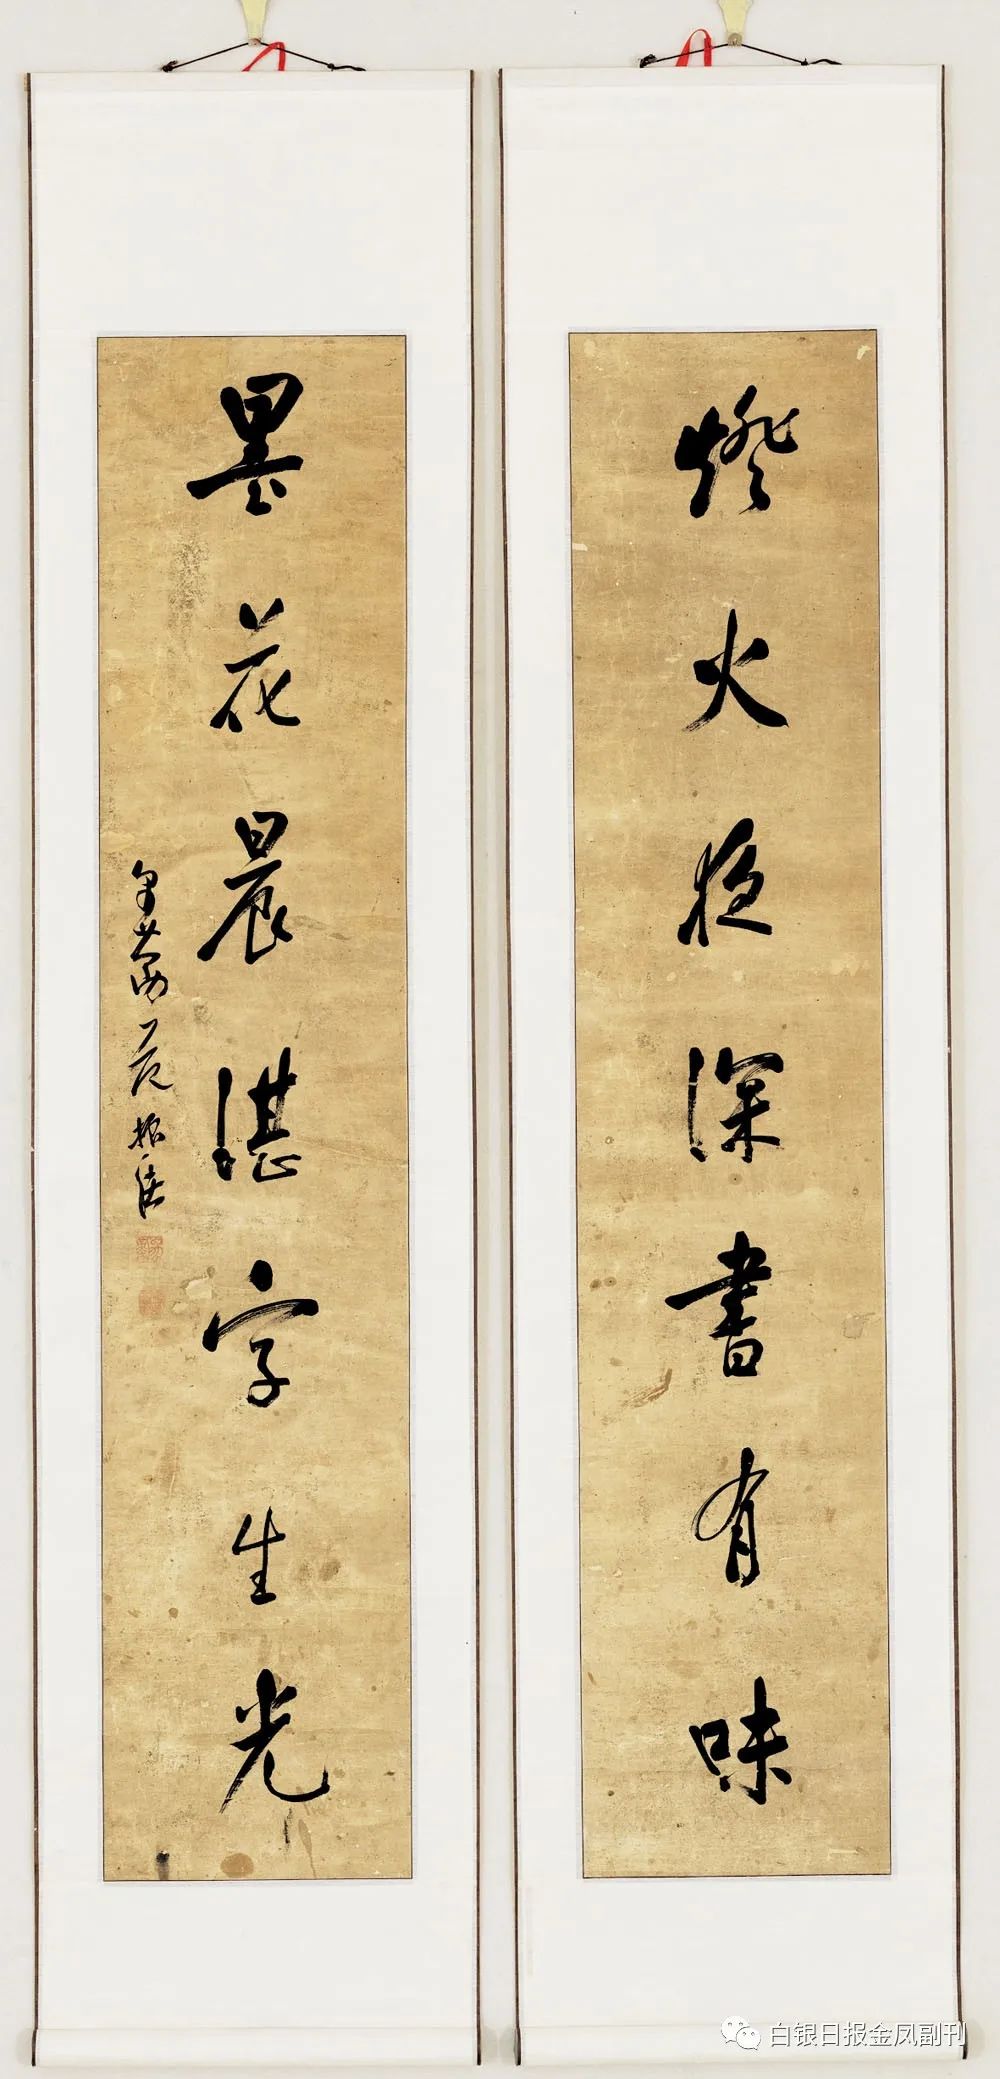 燈火夜深書有味
墨花晨湛字生光
范振緒
白银日报金凤副刊